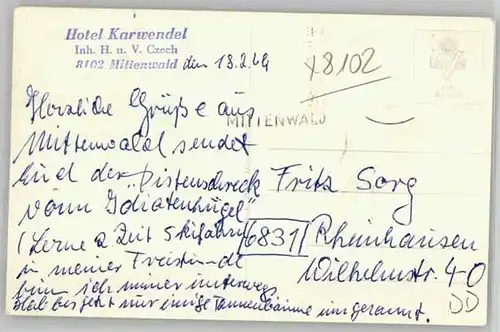 Hotel Karwendel
Inh. H. u. V. Czech
8102 Mittenwald den 18.2.69
8102
MITTENWALD
Herzliche Grüße aus
Mittenwald sendet
Euch der „Pistenschreck
vom Idiotenhügel"
(Lerne z Zeit Skifahren
in meiner Freizeit - da
bin ich immer unterwegs
Hab bis jetzt nur einige Tannenbäume umgerannt.
Fritz Sorg
6831 Rheinhausen
Wilhelmstr. 40